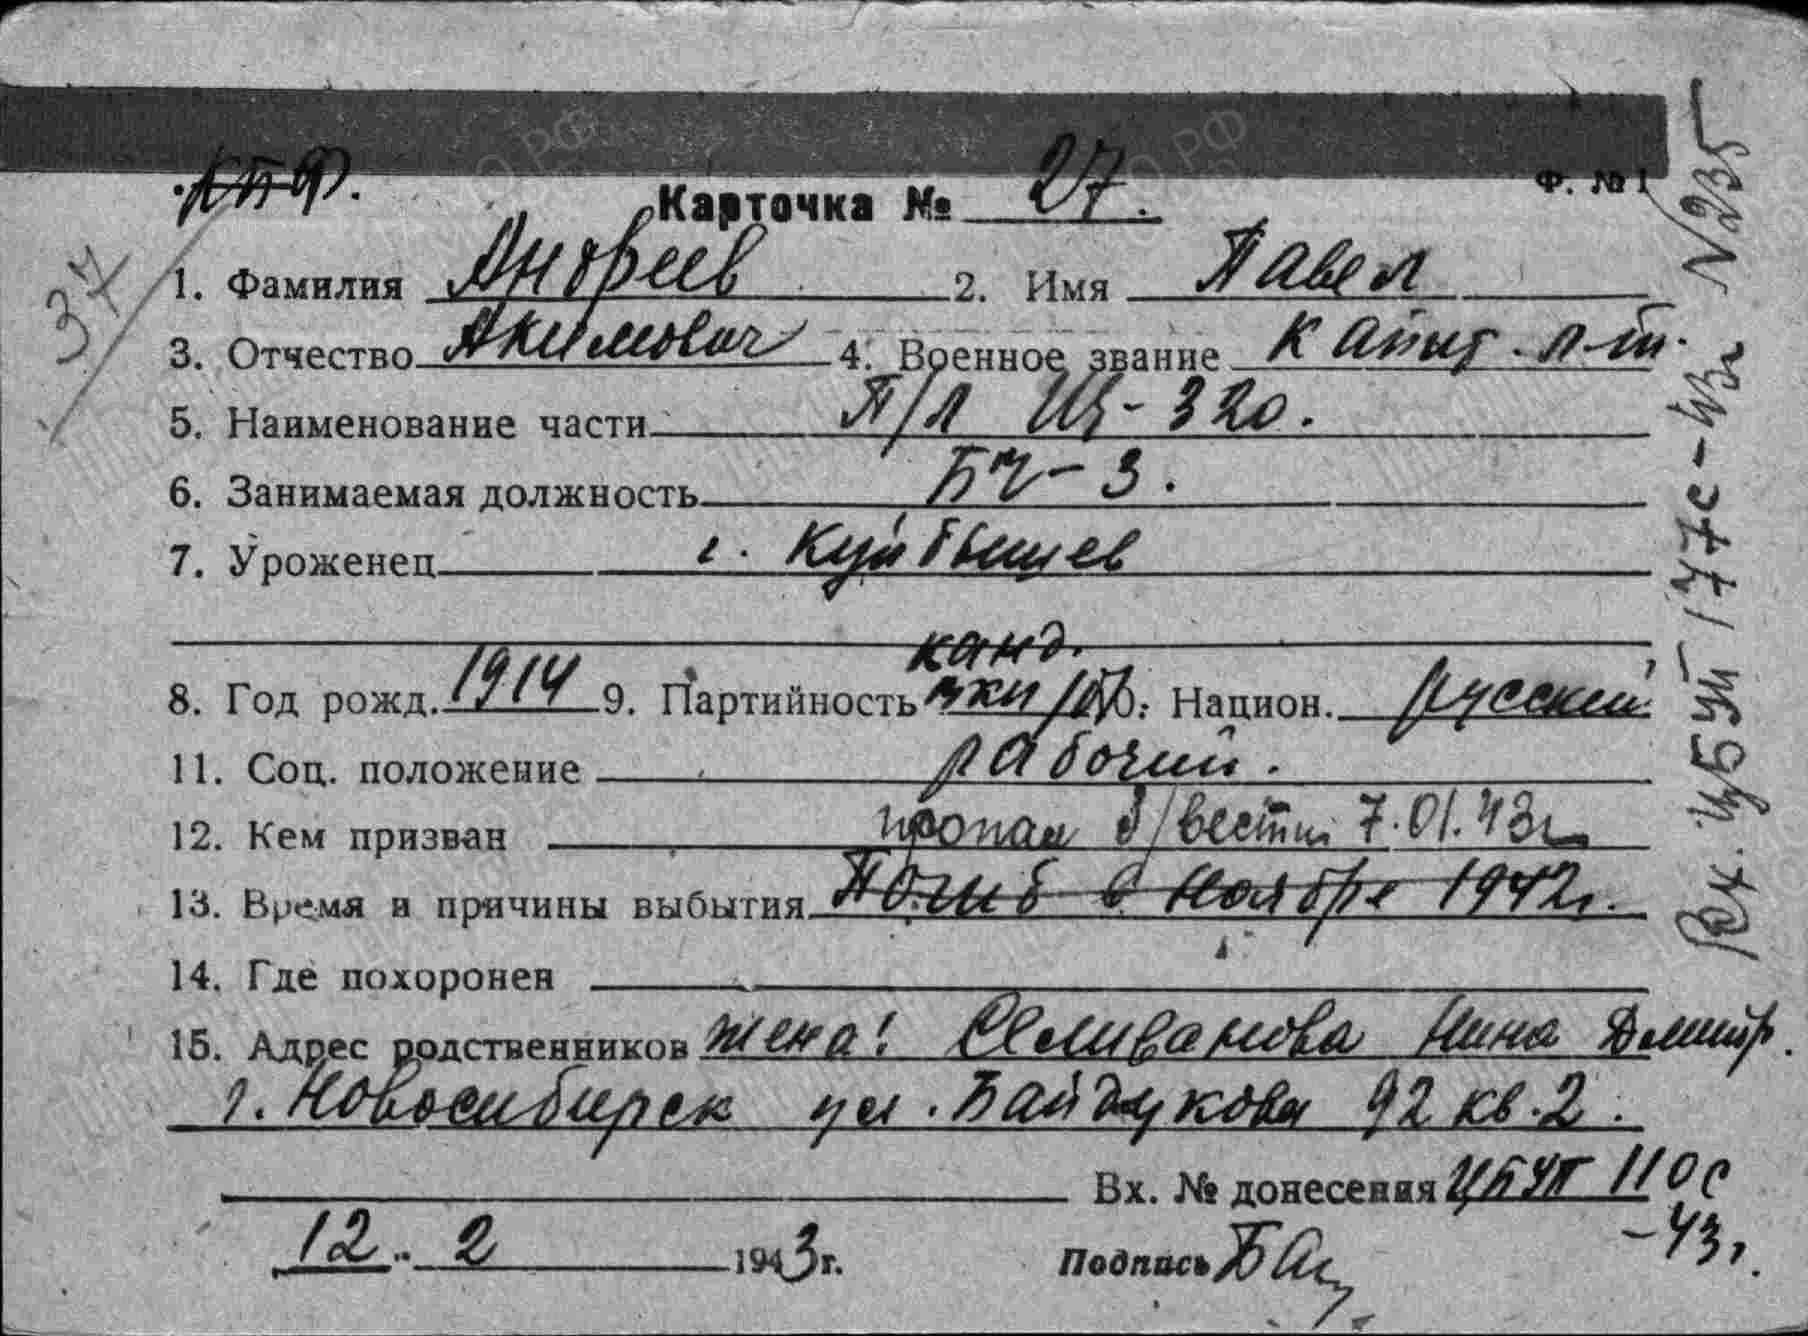 КБФ.
Ф. № 1
Карточка № 27.
37
1. Фамилия Андреев 2. Имя Павел
3. Отчество Акимович 4. Военное звание Капит. л-т.
5. Наименование части П/Л Щ-320.
6. Занимаемая должность БЧ-3.
7. Уроженец г. Куйбышев
канд.
8. Год рожд. 1914 9. Партийность ВКП/б/ 10. Национ. русский
11. Соц. положение рабочий.
12. Кем призван
пропал б/вести 7.01.43г
13. Время и причины выбытия Погиб в ноябре 1942г.
14. Где похоронен
15. Адрес родственников жена: Селиванова Нина Дмитр.
г. Новосибирск ул. Байдукова 92 кв. 2.
Вх. № донесения ЦБУП 110с
-43г.
12. 2 1943г. Подпись
Вх. ЦБУП 177с-43г N235